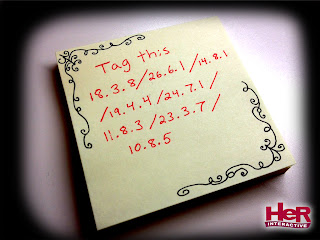 Tag this
18.3.8/26.6.1/14.8.1
/19.4.4/24.7.1/
11.8.3/23.3.7/
10.8.5
HeR
INTERACTIVE